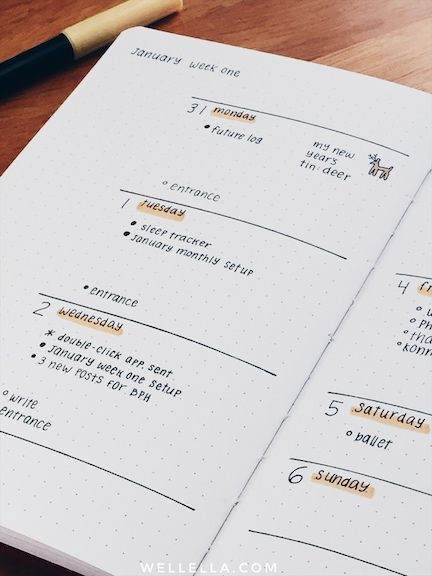 January week one
31 monday
• future log
my new
years
tin: deer
◦ entrance
1 Tuesday
• sleep tracker
• January monthly setup
• entrance
2 wednesday
* double-click app sent
• January week one setup
• 3 new posts for BPH
◦ write
entrance
4
5 saturday
◦ ballet
6 sunday
WELLELLA.COM